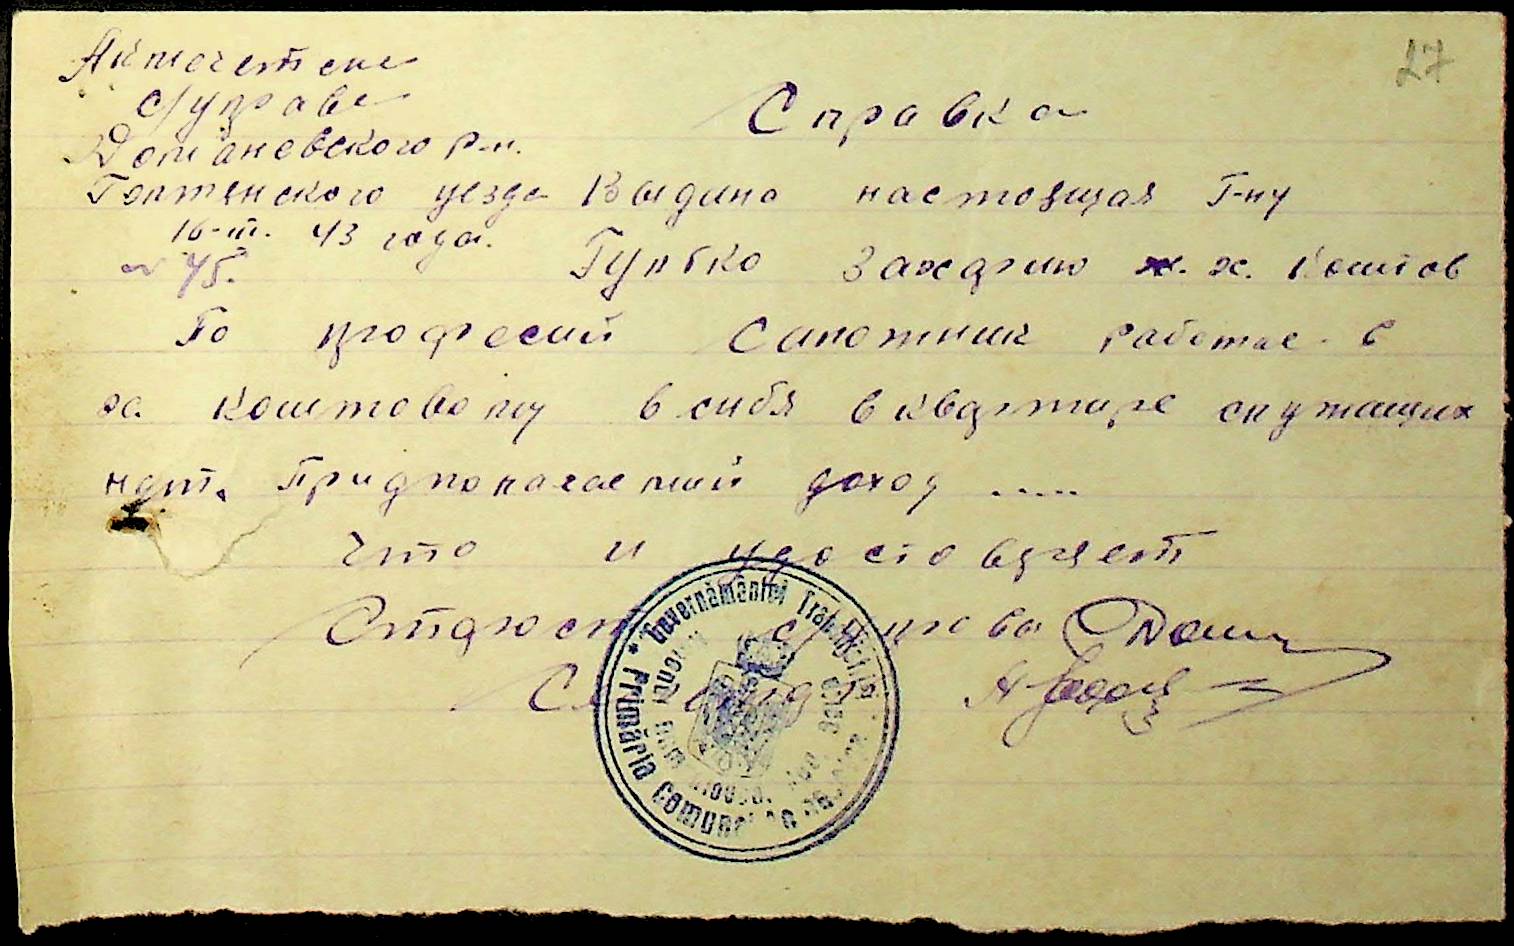 27
Акмечетске
с/управе
Домановского р-н.
Голтянского уезда
16-III. 43 года.
N 45.
Справка
Выдина настоящая Г-ну
Гулько Захарию ж. х. Коштов
По професий Сапожник работае в
за коштовому в сибя в квартире служащих
нет. Придполагаемий доход .....
Что и удостовряет
Староста с/управа
Секретарь
* Guvernământul Transnistria *
Primăria Comunei